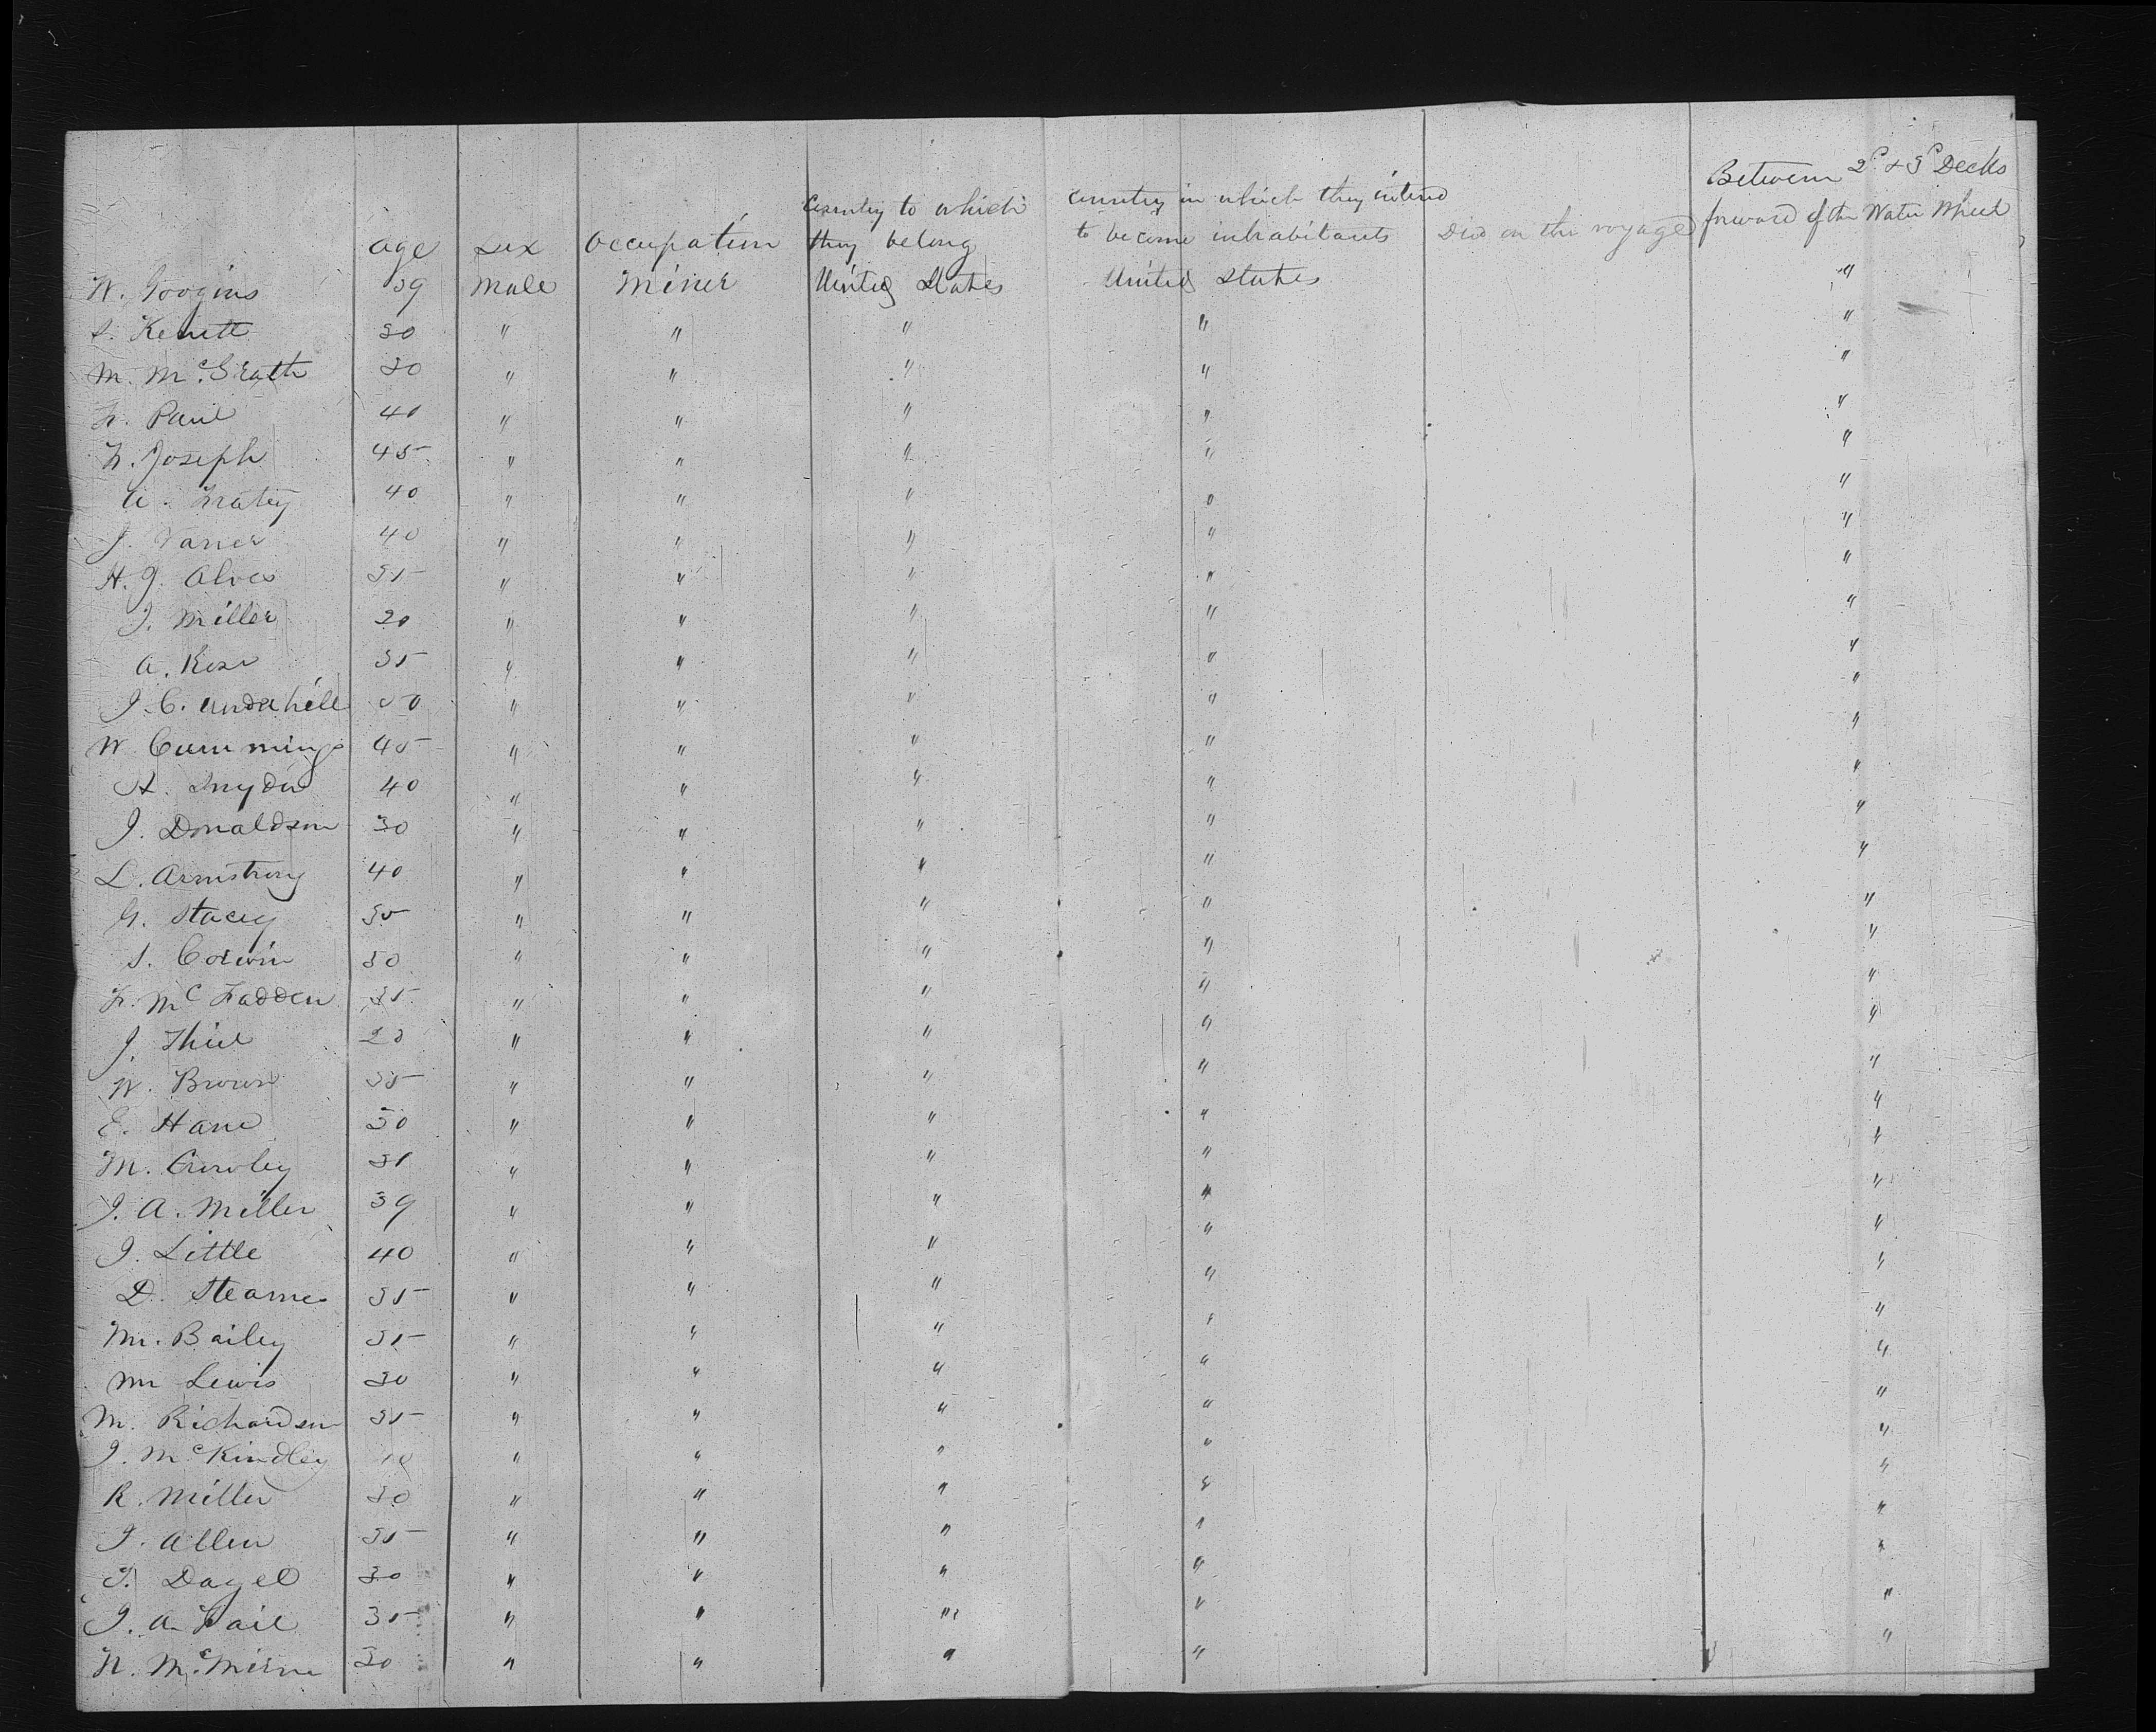 Between 2d & 3d Decks
Country to which country in which they intend
age sex Occupation they belong to become inhabitants Died on the voyage forward of the Water Wheel
W. Googins 39 male miner United States United States "
S. 30 " " " " "
M. McGrath 30 " " " " "
40 " " " " "
Joseph 45 " " " " "
A. 40 " " " " "
J. 40 " " " " "
H. J. Alves 35 " " " " "
J. Miller 20 " " " " "
A. Rose 35 " " " " "
J. C. Underhill 50 " " " " "
W Cummings 45 " " " " "
A. Snyder 40 " " " " "
J. Donaldson 30 " " " " "
L. Armstrong 40 " " " " "
G. Stacey 35 " " " " "
S. Corwin 30 " " " " "
F. McFadden 35 " " " " "
J. Thiel " " " " "
W. Brown 35 " " " " "
E. Hane 30 " " " " "
M. Crowley " " " " "
J. A. Miller 39 " " " " "
J. Little 40 " " " " "
D. Stearnes 35 " " " " "
Mr. Bailey 35 " " " " "
Mr Lewis 30 " " " " "
M. Richardson 35 " " " " "
J. McKindley " " " " "
R. Miller 30 " " " " "
J. Allen 35 " " " " "
T. Dayel 30 " " " " "
J. A. 35 " " " " "
N. 30 " " " " "